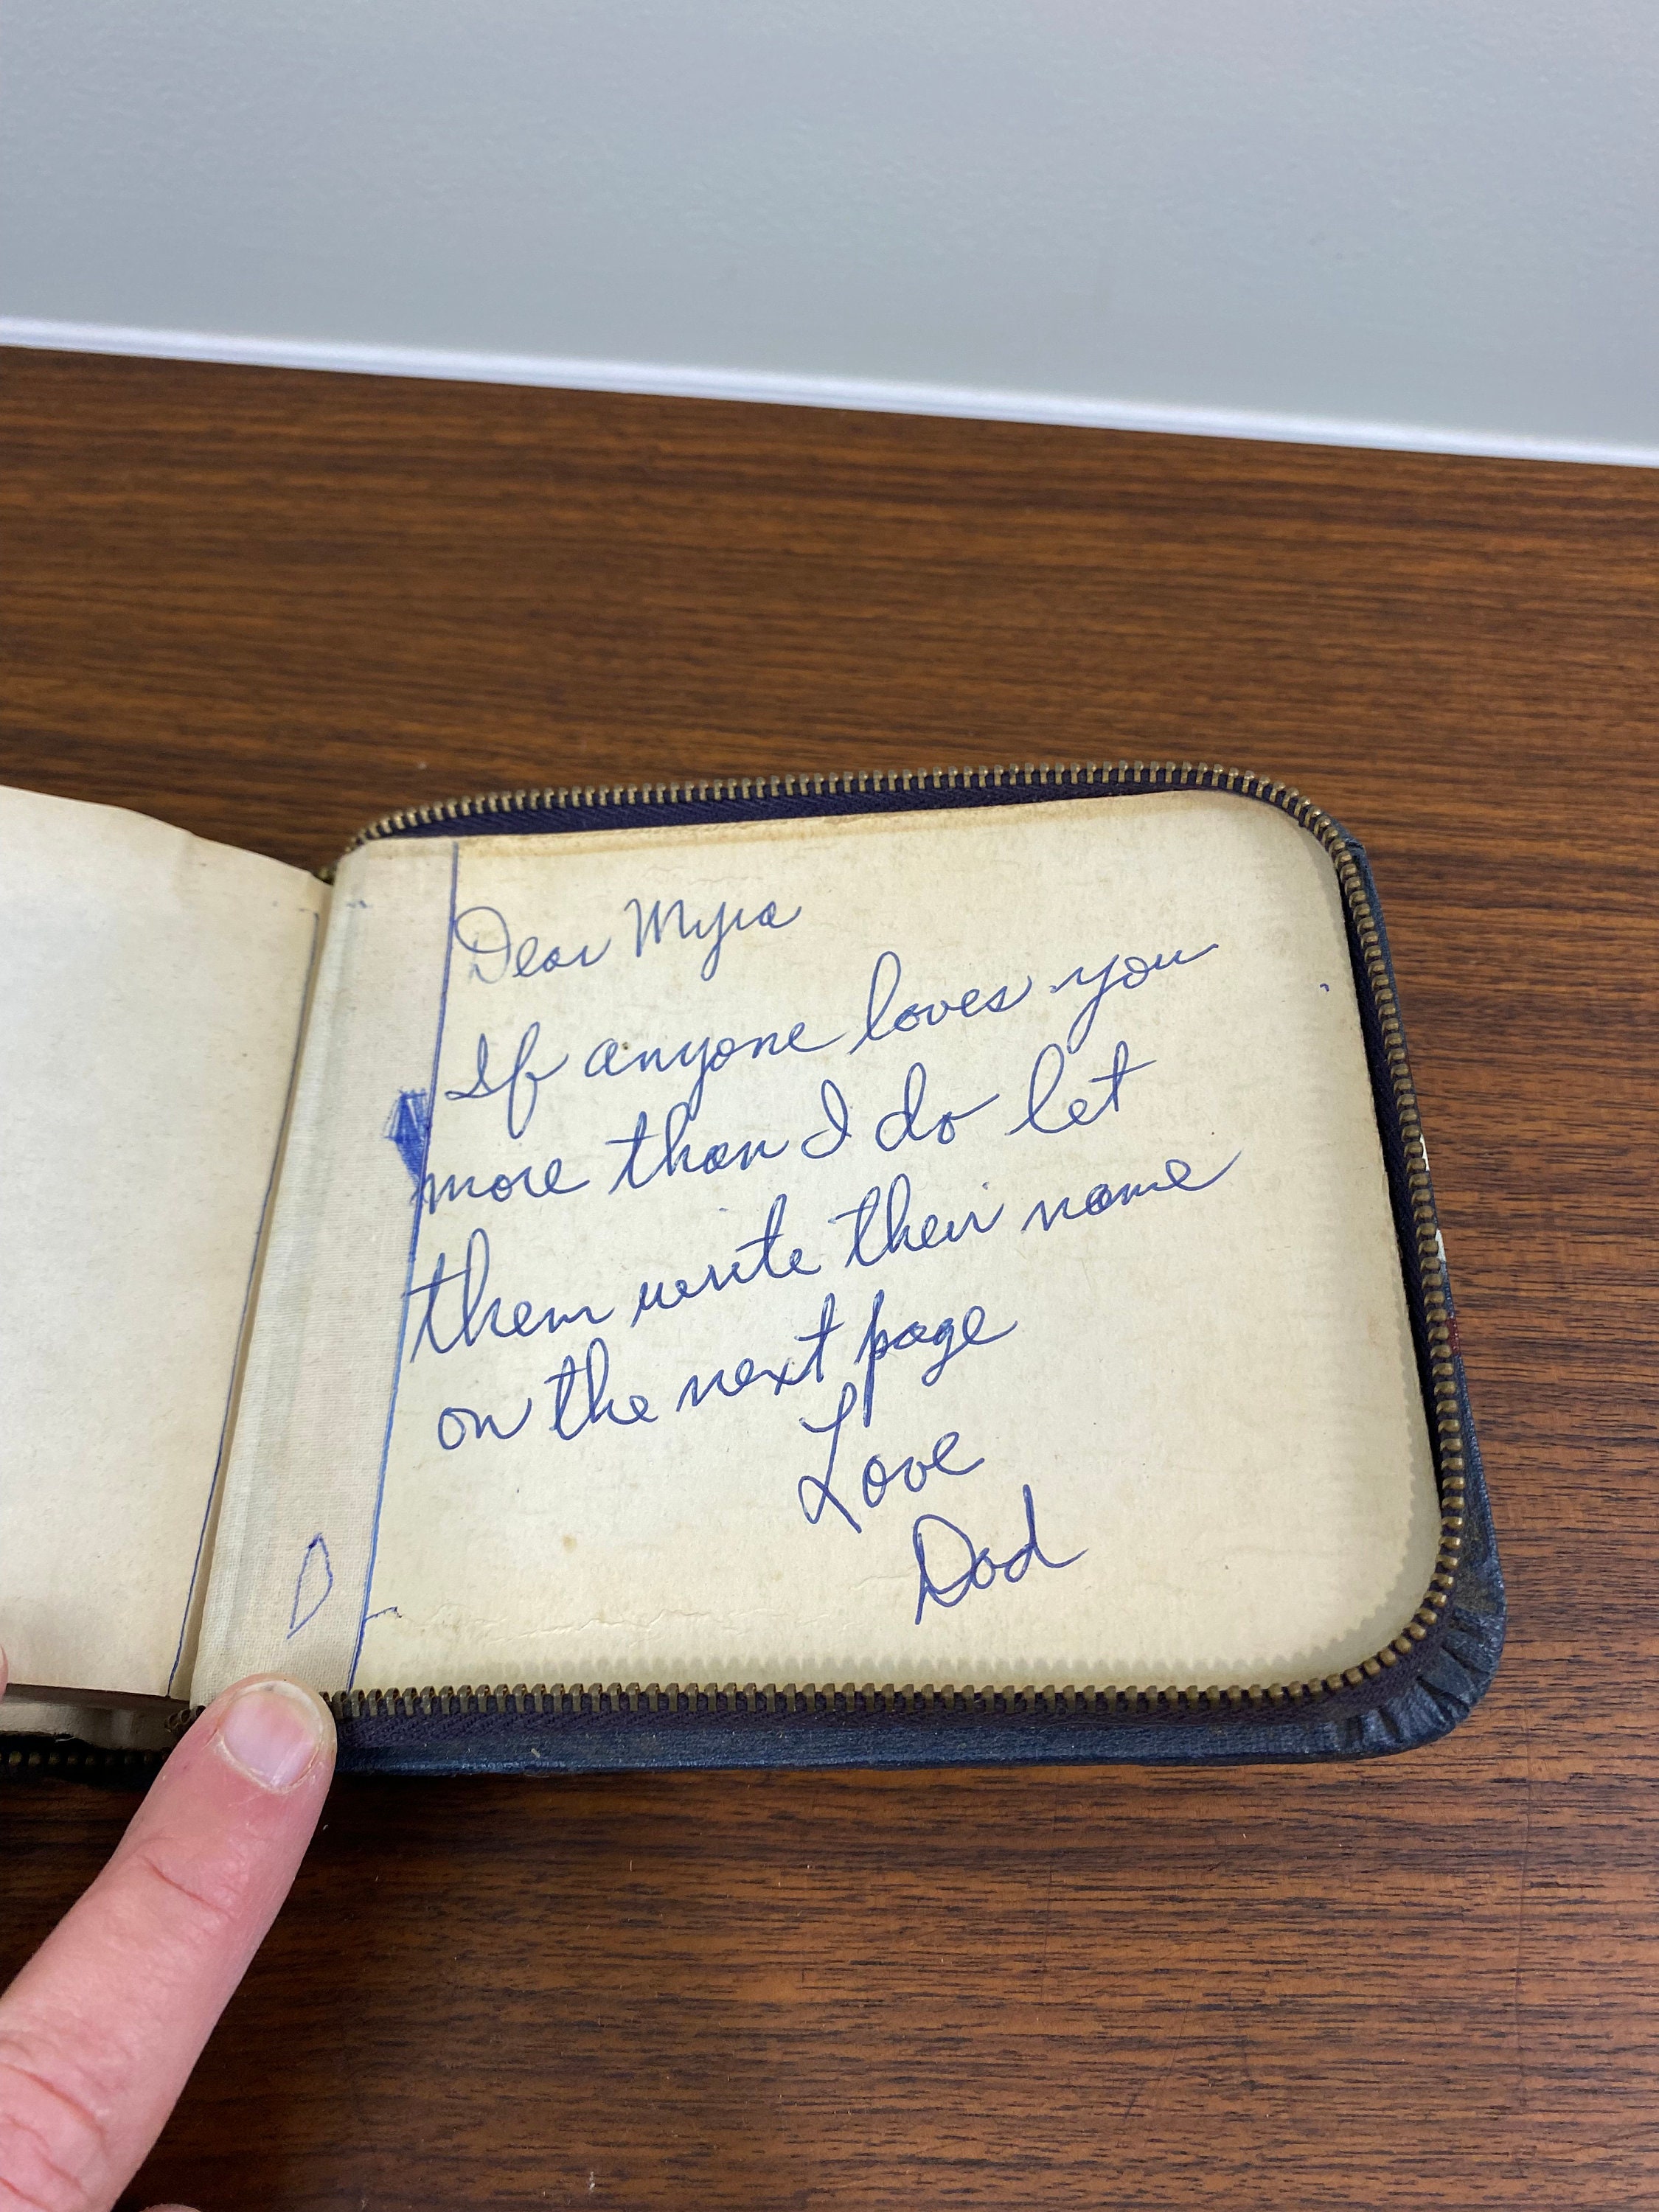 Dear Myra
If anyone loves you
more than I do let
them write their name
on the next page
Love
Dad